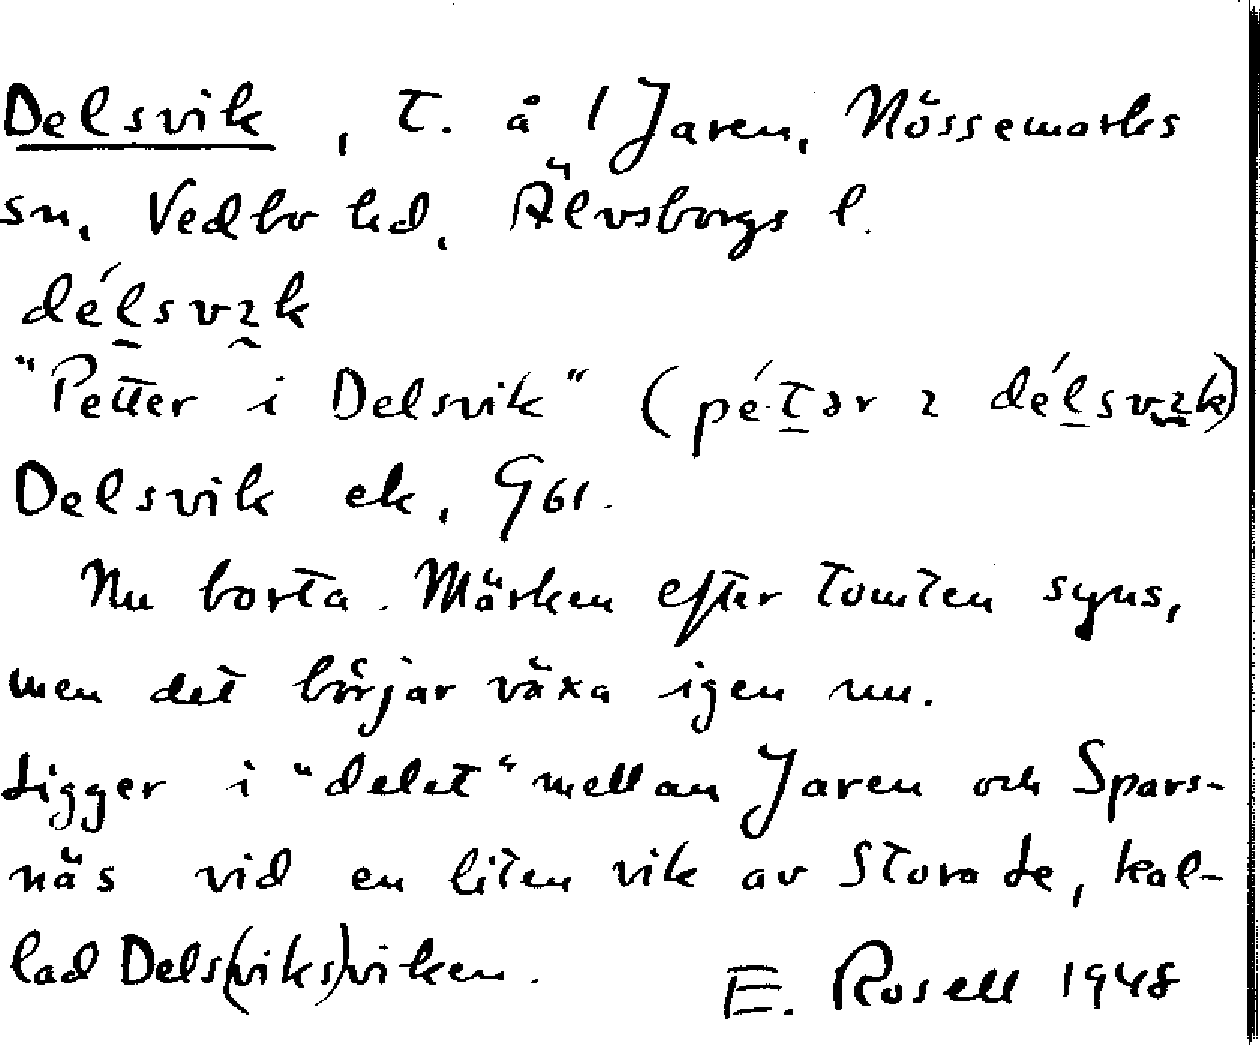 Delsvik, T. å 1 Jaren, Nössemarks
sn, Vedbo hd, Älvsborgs l.
délsvɩk
"Petter i Delsvik" (pé·tər ɩ délsvɩk)
Delsvik ek, G61.
Nu borta. Märken efter tomten syns,
men det börjar växa igen nu.
Ligger i "delet" mellan Jaren och Spars-
näs vid en liten vik av Stora Le, kal-
lad Dels(viks)viken.
E. Rosell 1948